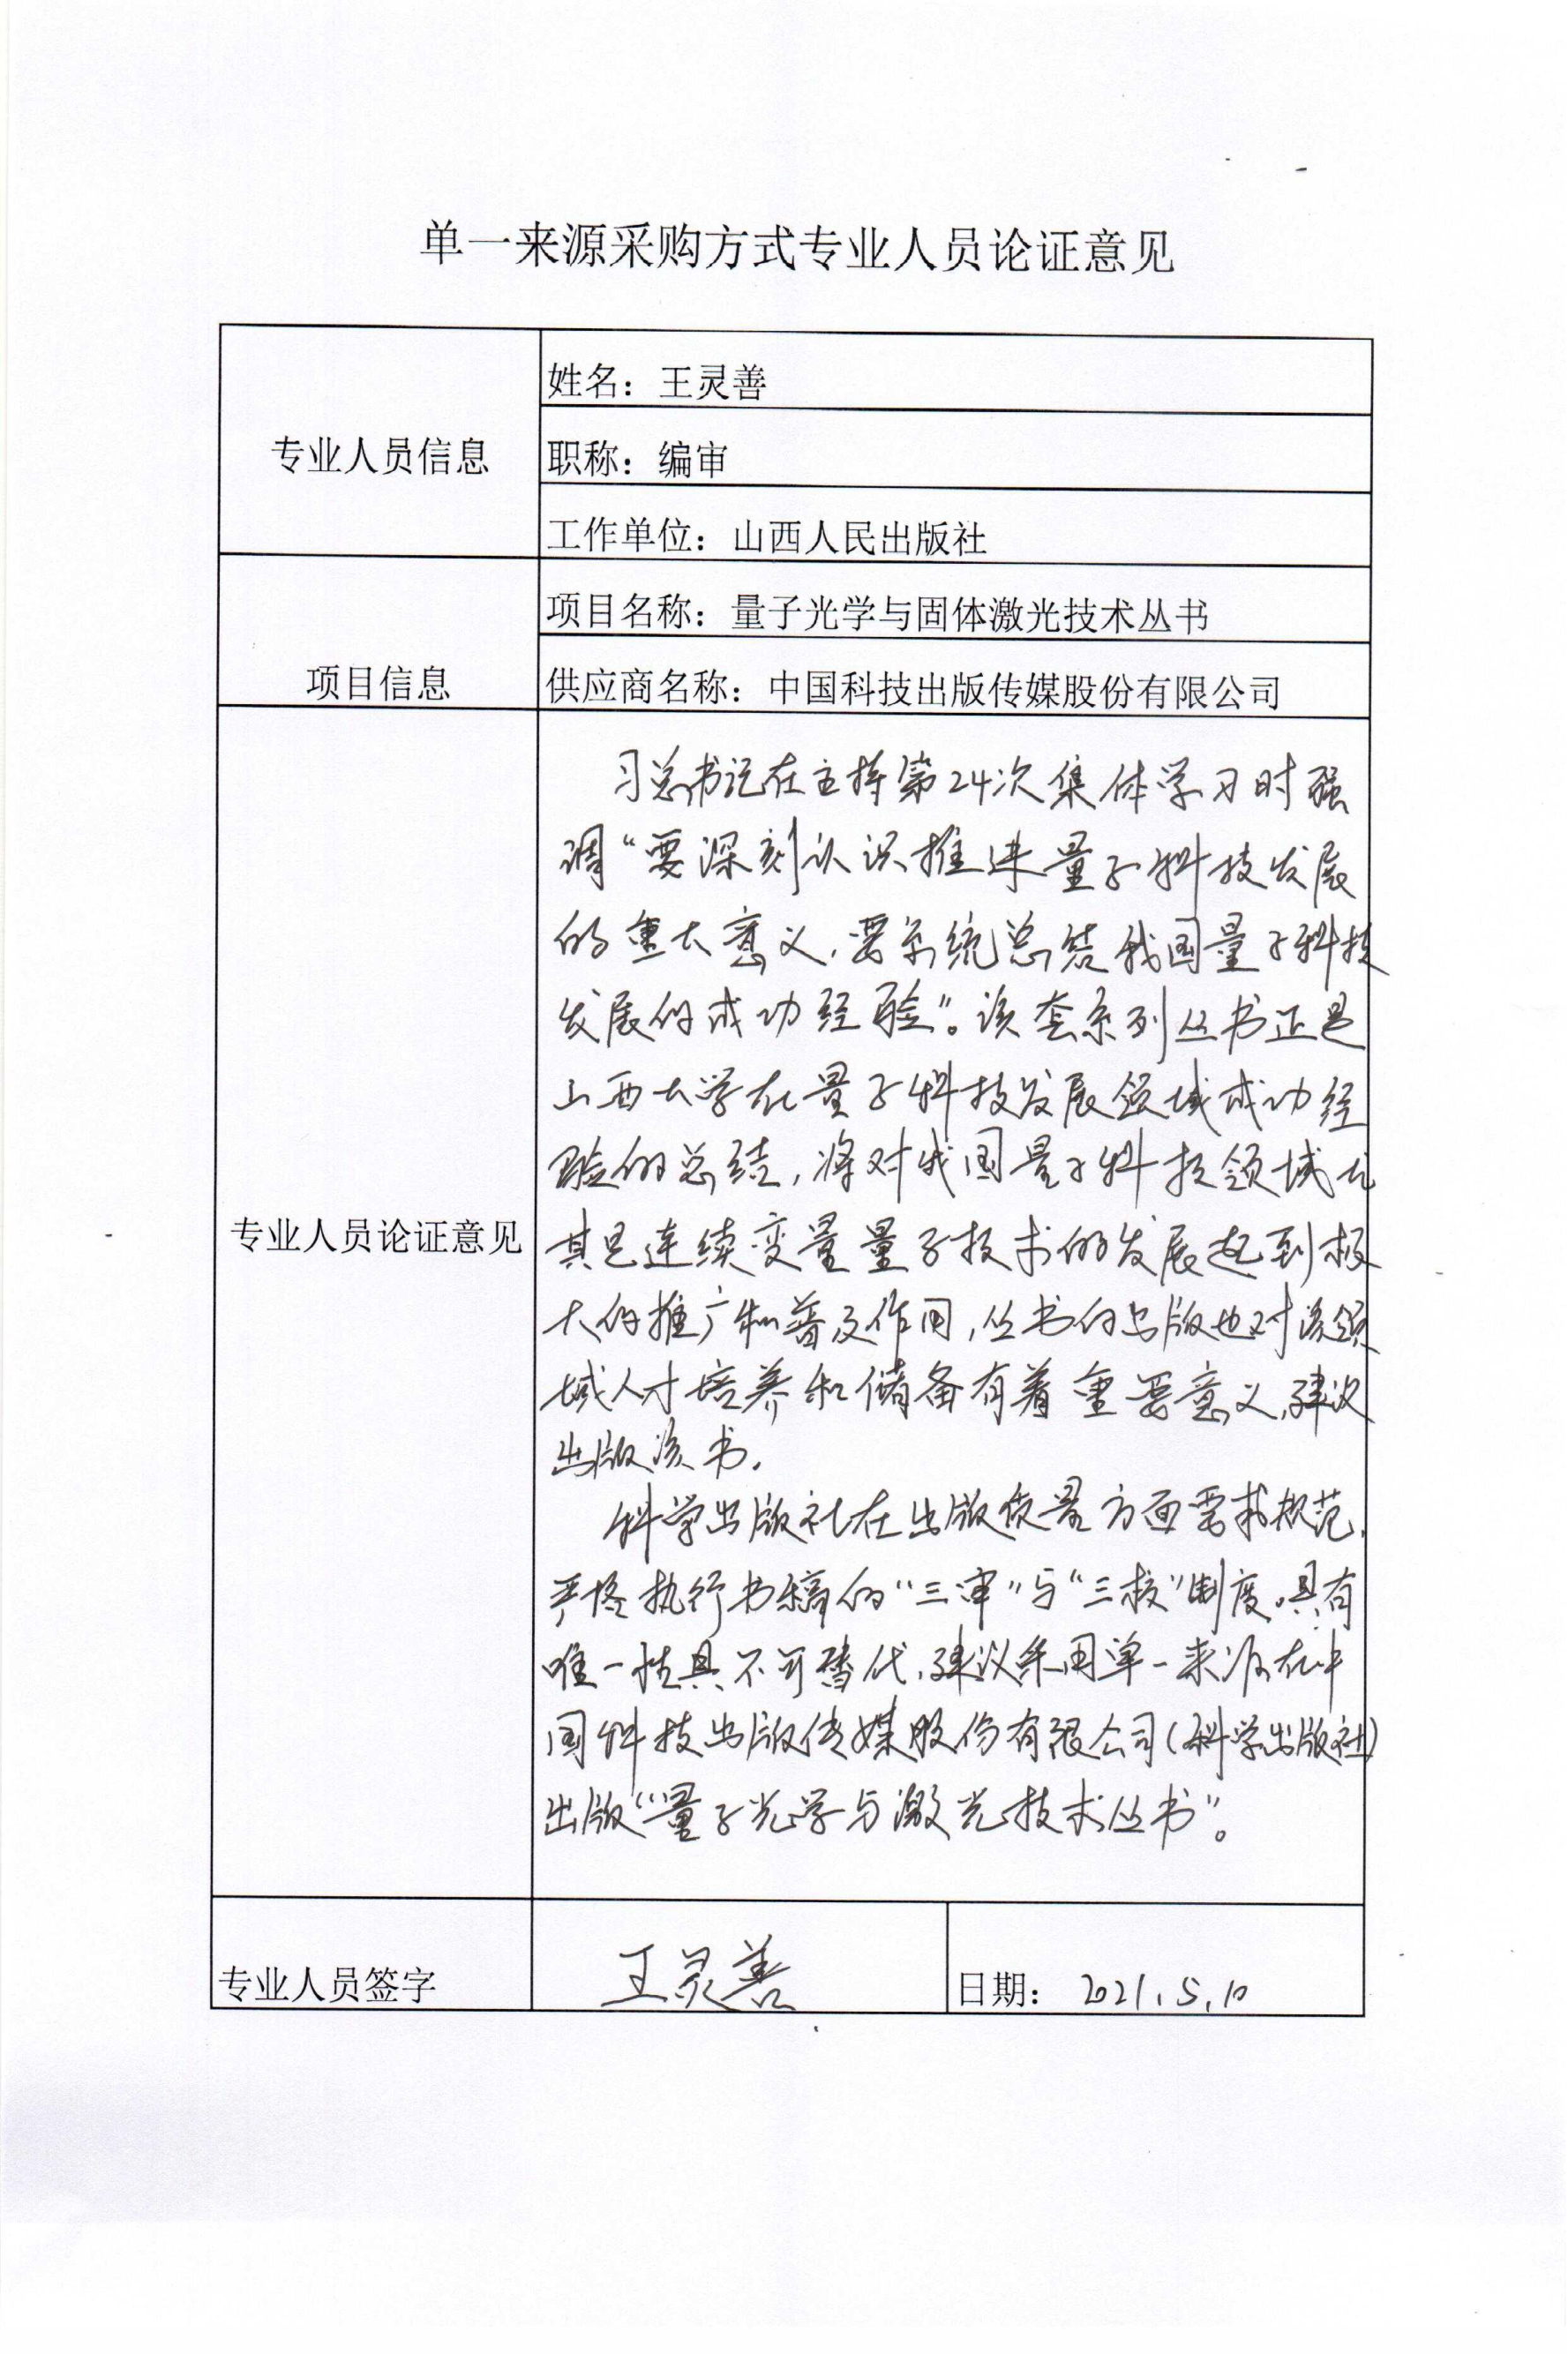 单一来源采购方式专业人员论证意见
专业人员信息
姓名：王灵善
职称：编审
工作单位：山西人民出版社
项目信息
项目名称：量子光学与固体激光技术丛书
供应商名称：中国科技出版传媒股份有限公司
专业人员论证意见
习总书记在主持第24次集体学习时强
调“要深刻认识推进量子科技发展
的重大意义，要系统总结我国量子科技
发展的成功经验”。该套系列丛书正是
山西大学在量子科技发展领域成功经
验的总结，将对我国量子科技领域尤
其是连续变量量子技术的发展起到极
大的推广和普及作用，丛书的出版也对该领
域人才培养和储备有着重要意义，建议
出版该书。
科学出版社在出版质量方面要求规范，
严格执行书稿的“三审”与“三校”制度。具有
唯一性具不可替代，建议采用单一来源在中
国科技出版传媒股份有限公司（科学出版社）
出版“量子光学与激光技术丛书”。
专业人员签字
王灵善
日期：2021.5.10